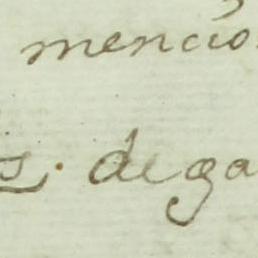 mencio
s. de ga